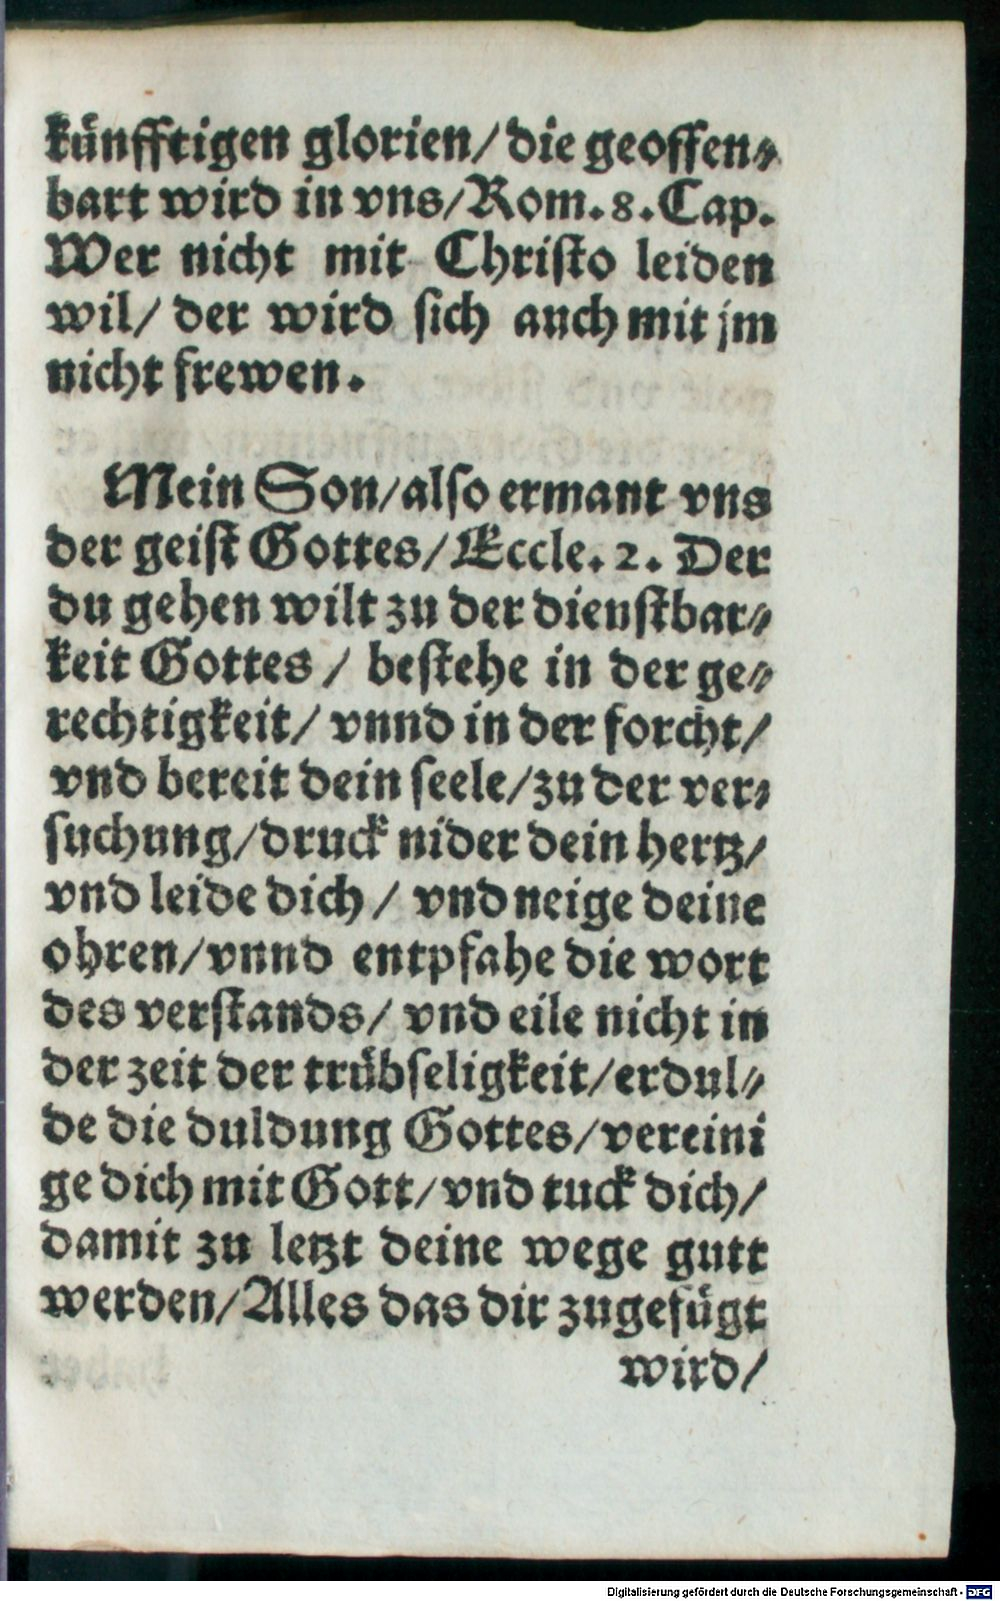 künfftigen glorien/ die geoffen⸗
bart wird in vns/ Rom. 8. Cap.
Wer nicht mit Christo leiden
wil/ der wird sich auch mit jm
nicht frewen.
Mein Son/ also ermant vns
der geist Gottes/ Eccle. 2. Der
du gehen wilt zu der dienstbar⸗
keit Gottes/ bestehe in der ge⸗
rechtigkeit/ vnnd in der forcht/
vnd bereit dein seele/ zu der ver⸗
suchung/ druck nider dein hertz/
vnd leide dich/ vnd neige deine
ohren/ vnnd entpfahe die wort
des verstands/ vnd eile nicht in
der zeit der trübseligkeit/ erdul⸗
de die duldung Gottes/ vereini
ge dich mit Gott/ vnd tuck dich/
damit zu letzt deine wege gutt
werden/ Alles das dir zugefügt
wird/
Digitalisierung gefördert durch die Deutsche Forschungsgemeinschaft - DFG